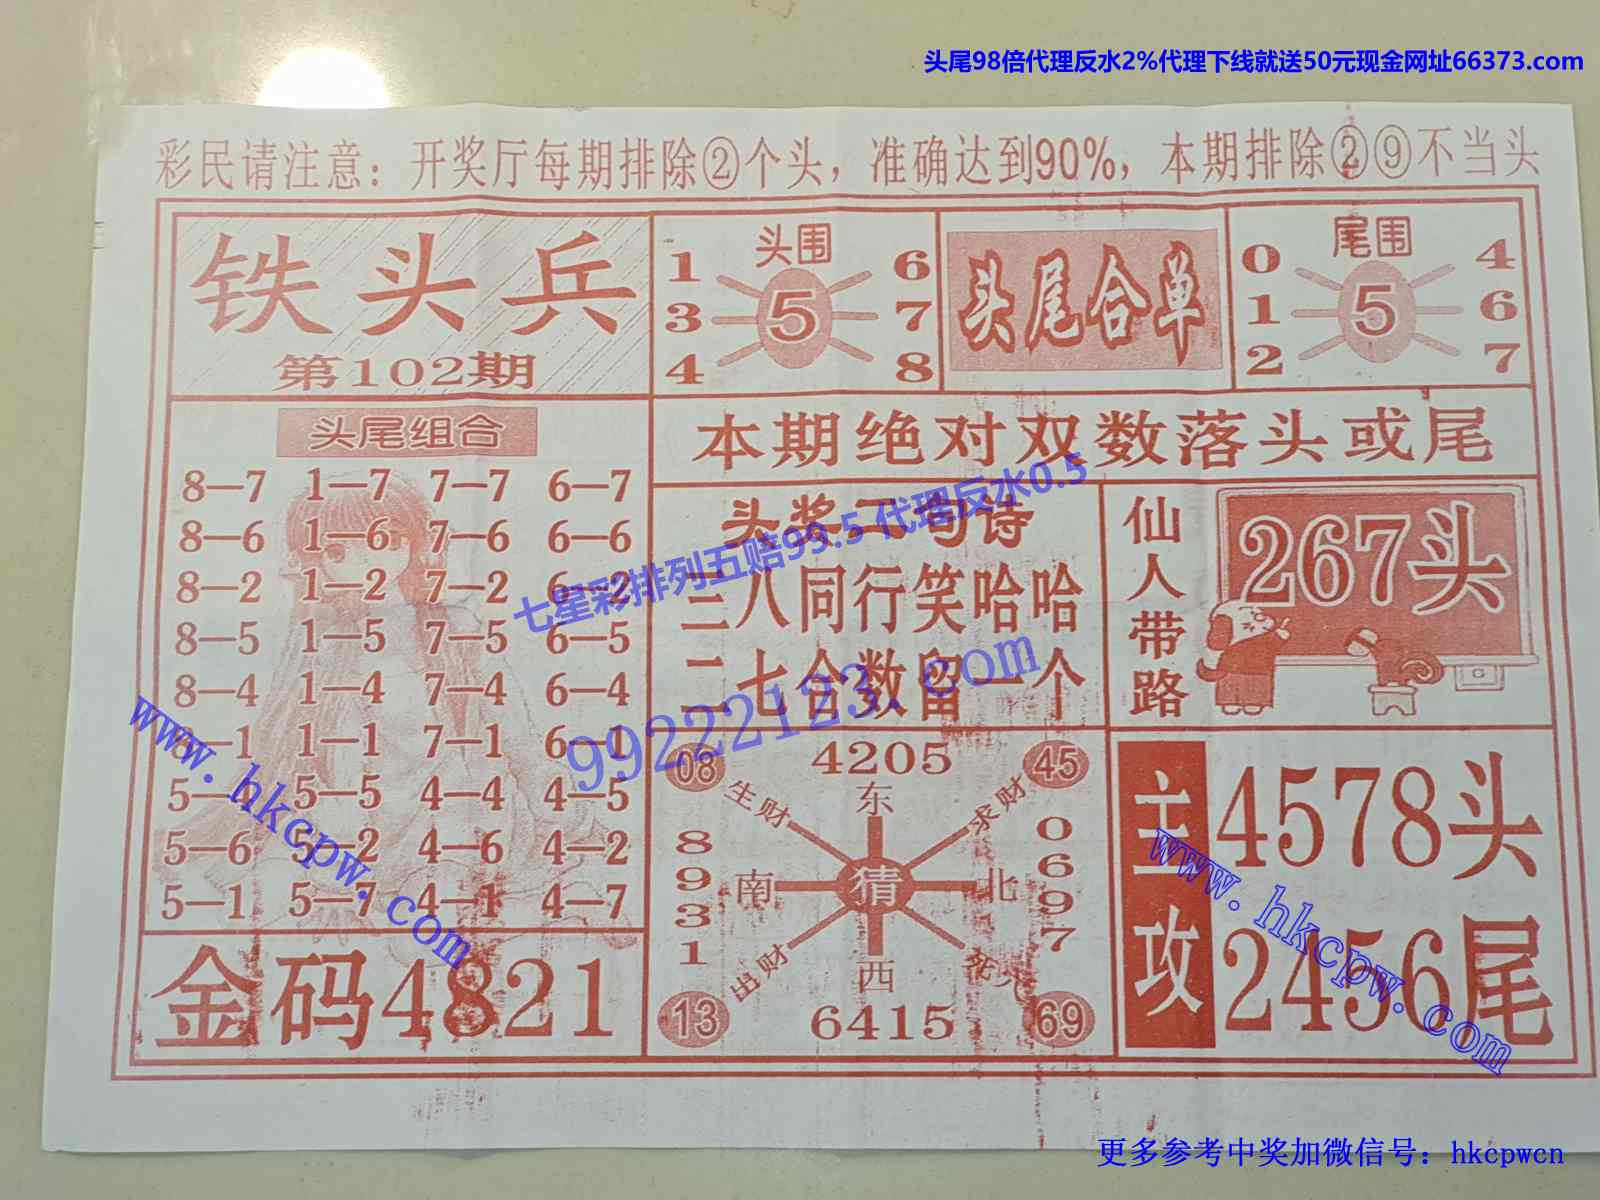 头尾98倍代理反水2%代理下线就送50元现金网址66373.com
彩民请注意：开奖厅每期排除②个头，准确达到90%，本期排除②⑨不当头
铁头兵
第102期
头围
1 6
3 5 7
4 8
头尾合单
尾围
0 4
1 5 6
2 7
头尾组合
8—7 1—7 7—7 6—7
8—6 1—6 7—6 6—6
8—2 1—2 7—2 6—2
8—5 1—5 7—5 6—5
8—4 1—4 7—4 6—4
8—1 1—1 7—1 6—1
5—4 5—5 4—4 4—5
5—6 5—2 4—6 4—2
5—1 5—7 4—1 4—7
金码4821
本期绝对双数落头或尾
头奖二句诗
三八同行笑哈哈
二七合数留一个
仙人带路
267头
08 4205 45
生财 东 求财
8931 南 猜 北 0697
出财 西
13 6415 69
主攻
4578头
2456尾
七星彩排列五赔99.5 代理反水0.5
99222123.com
www.hkcpw.com
www.hkcpw.com
更多参考中奖加微信号：hkcpwcn